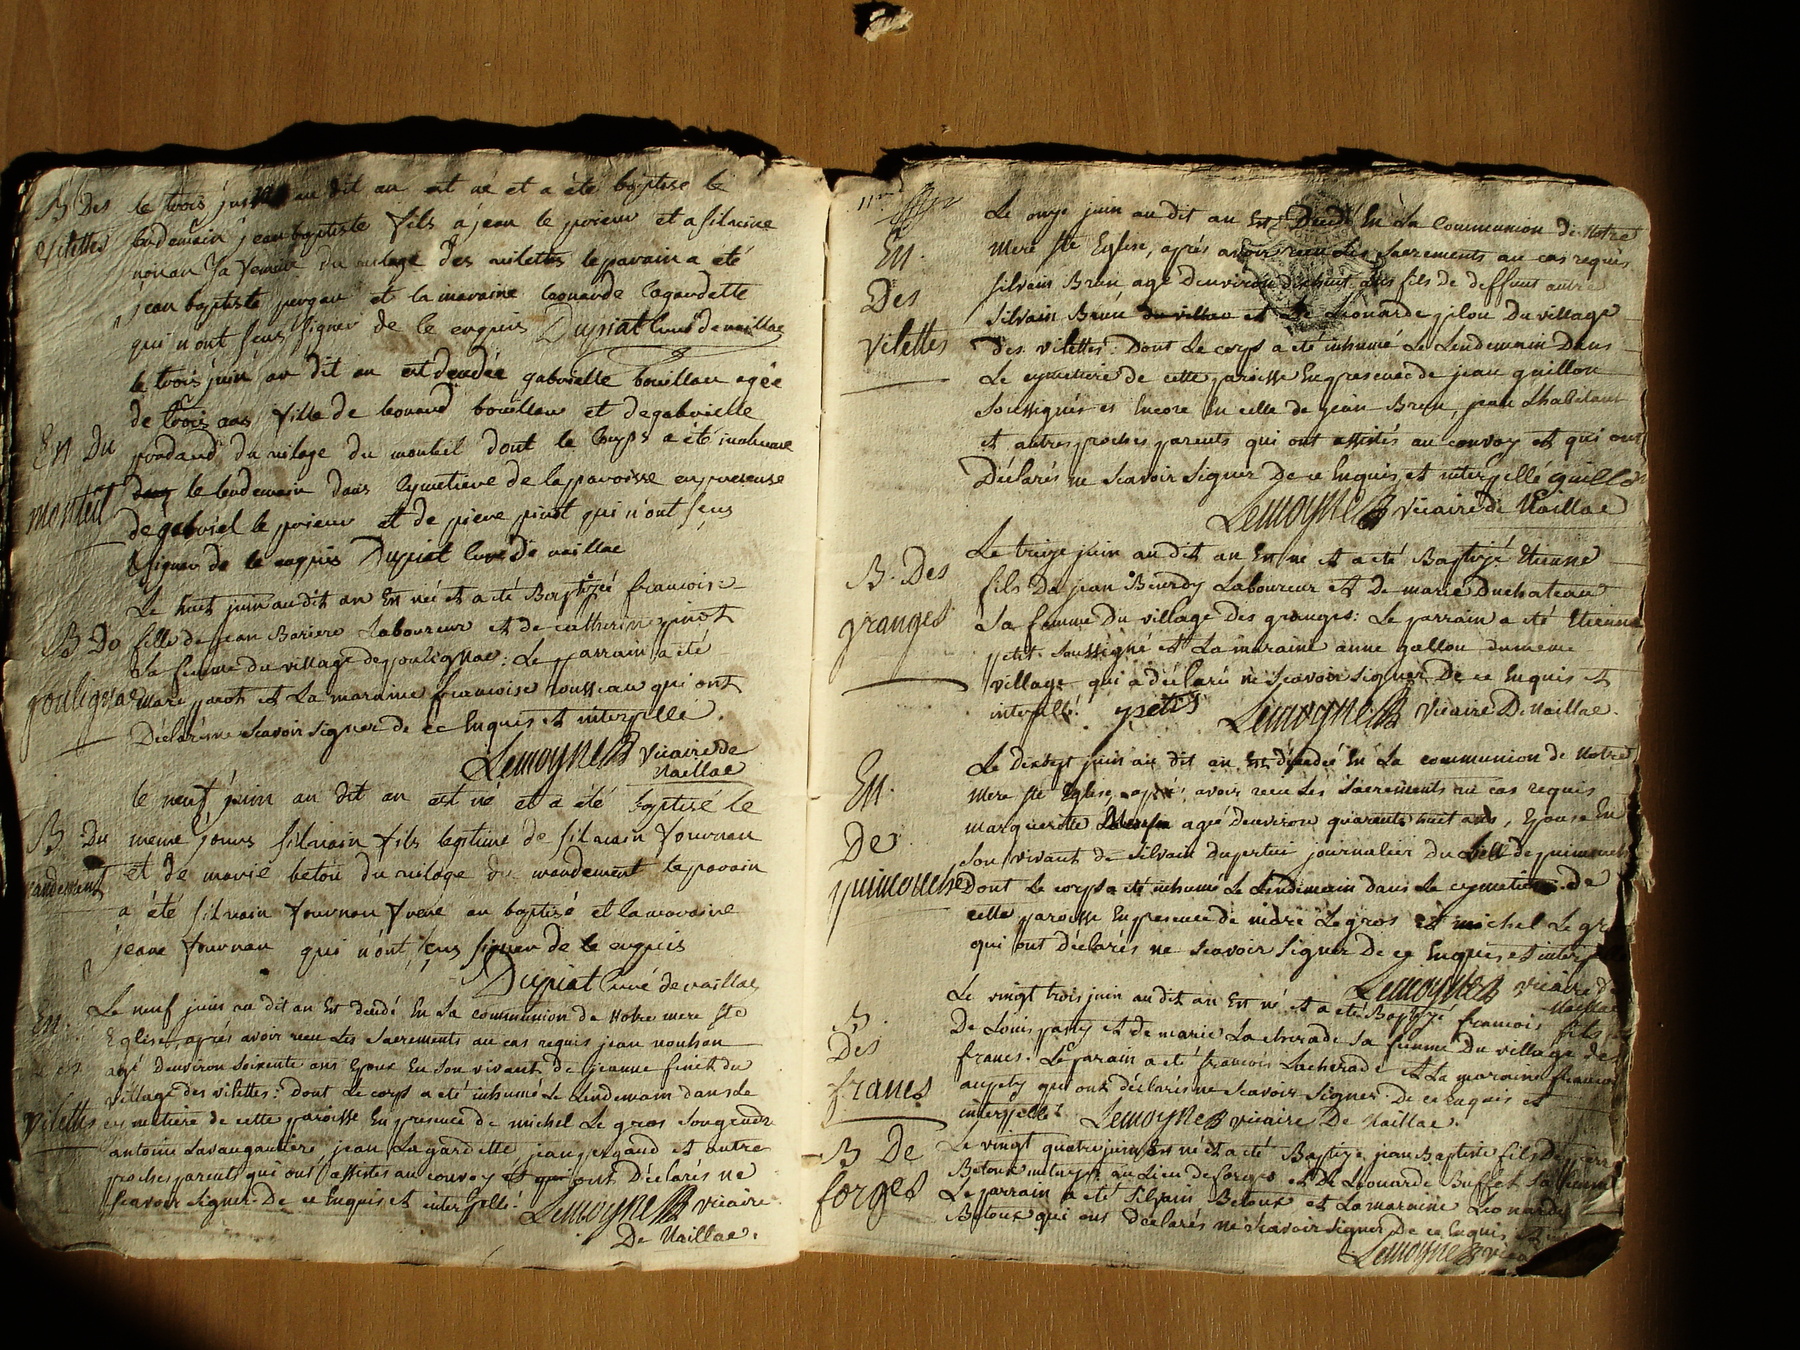 B Des
Vilettes
le trois juin au dit an est né et a été baptisé le
lendemain jean baptiste fils a jean le prieur et a silvaine
sa femme du vilage des vilettes le parain a été
jean baptiste et la maraine leonarde lagardette
qui n'ont seus signer de le enquis Dupiat curé de naillac
En Du
monteil
le trois juin au dit an est deudée gabrielle bouillau agée
de trois ans fille de leonard bouillau et de gabrielle
du vilage du monteil dont le corps a été inhumé
le lendemain dans cymetiere de la paroisse en presense
de gabriel le prieur et de piere pinot qui n'ont seus
signer de le enquis Dupiat curé de naillac
B Do
poulignac
Le huit juin au dit an Est né et a été Baptisée francoise
fille de jean Bariere Laboureur et de catherine pinot
Sa femme du village de poulignac: Le parrain a été
marc pinot et La maraine francoise rousseau qui ont
Déclaré ne scavoir signer de ce Enquis et interpellé.
Lemoyne vicaire de
Naillac
B Du
mandement
le neuf juin au dit an est né et a été baptisé le
meme jours silvain fils legitime de silvain fournau
et de marie betou du vilage du mandement le parain
a été silvain fournau frere au baptisé et la maraine
jeane fournau qui n'ont seus signer de le enquis
Dupiat curé de naillac
En.
Des
Vilettes
Le neuf juin au dit an Est deudé En La communion de Notre mere ste
Eglise, après avoir recu Les Sacrements au cas requis jean nouhan
agé denviron soixente ans Epoux En son vivant de jeanne finet du
village des vilettes: Dont Le corps a été inhumé Le Lendemain dans le
cymetiere de cette paroisse En presence de michel Le gros son gendre
antoine Lavaugautiere, jean Lagardette jean pergaud et autres
proches parents qui ont assistés au convoy et qui ont Déclarés ne
scavoir signer De ce Enquis et interpellé. Lemoyne vicaire
De Naillac.
11me
En.
Des
Vilettes
Le onze juin au dit an Est Deudé En La Communion de Notre
Mere ste Eglise, après avoir recu Les Sacrements au cas requis
Silvain Brun, agé denviron dixhuit ans fils de deffunt autre
Silvain Brun du village et de Leonarde gilou Du village
des vilettes: Dont Le corps a été inhumé Le Lendemain Dans
Le cymetiere de cette paroisse En presence de jean guillon
Soussignés et Encore En celle de jean Brun, jean Lhabitant
et autres proches parents qui ont assistés au convoy et qui ont
Déclarés ne Scavoir Signer De ce Enquis et interpellé guillon
Lemoyne vicaire de Naillac
B. Des
granges
Le treize juin au dit an Est né et a été Baptizé Etienne
fils De jean Beurdy Laboureur et De marie Duchateau
Sa femme Du village Des granges: Le parrain a été Etienne
petit Soussigné et La maraine anne gallou du meme
village qui a déclaré ne Scavoir Signer De ce Enquis et
interpellé. petit Lemoyne vicaire De Naillac.
En.
De
puimouche
Le dixsept juin au dit an Est décédée En La communion de Notre
Mere ste Eglise, après avoir recu Les Sacrements au cas requis
margueritte agée denviron quarente huit ans, Epouse En
Son vivant de Silvain Dupertui journalier Du Lieu de puimouche
Dont Le corps a été inhumé Le Lendemain dans Le cymetiere de
cette paroisse En presence de Legros et michel Le gros
qui ont déclarés ne Scavoir Signer De ce Enquis et interpellé
Lemoyne vicaire de
Naillac
B
Des
francs
Le vingt trois juin au dit an Est né et a été Baptizé francois fils
De Louis et de marie Lacherade sa femme Du village des
francs. Le parain a été francois Lacherade et La maraine francoise
aupety qui ont déclarés ne Scavoir Signer De ce Enquis et
interpellé. Lemoyne vicaire De Naillac.
B De
forges
Le vingt quatre juin Est né et a été Baptizé jean Baptiste fils De
Betoux au Lieu de forges et De Leonarde Buffet sa femme
Le parrain a été Silvain Betoux et La maraine Leonarde
Betoux qui ont déclarés ne Scavoir Signer De ce Enquis et
Lemoyne